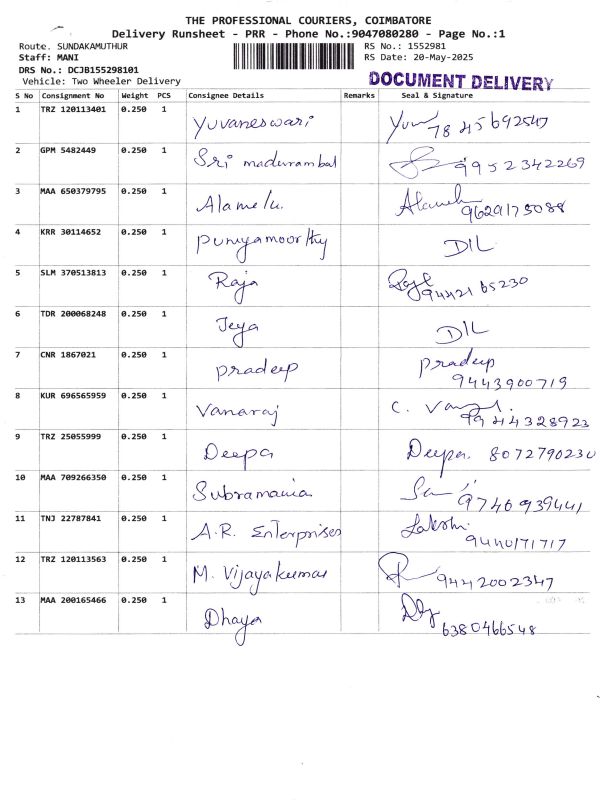 THE PROFESSIONAL COURIERS, COIMBATORE
Delivery Runsheet - PRR - Phone No.:9047080280 - Page No.:1
Route. SUNDAKAMUTHUR RS No.: 1552981
Staff: MANI RS Date: 20-May-2025
DRS No.: DCJB155298101
Vehicle: Two Wheeler Delivery DOCUMENT DELIVERY
S No Consignment No Weight PCS Consignee Details Remarks Seal & Signature
1 TRZ 120113401 0.250 1 Yuvaneswari 78 45 692547
2 GPM 5482449 0.250 1 Sri madurambal 9952342269
3 MAA 650379795 0.250 1 Alamelu. 9629175088
4 KRR 30114652 0.250 1 punyamoorthy DIL
5 SLM 370513813 0.250 1 Raja 9442165230
6 TDR 200068248 0.250 1 Jeya DIL
7 CNR 1867021 0.250 1 pradeep pradeep
9443900719
8 KUR 696565959 0.250 1 Vanaraj C.
9944328923
9 TRZ 25055999 0.250 1 Deepa Deepa. 8072790230
10 MAA 709266350 0.250 1 Subramania 9746939441
11 TNJ 22787841 0.250 1 A.R. Enterprises Lakshmi
9440171717
12 TRZ 120113563 0.250 1 M. Vijayakumar 9442002347
13 MAA 200165466 0.250 1 Dhaya
6380466548